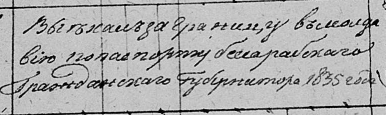 Выѣхалъ за границу въ Молда
вію по паспорту бессарабскаго
Гражданскаго Губернатора 1835 года